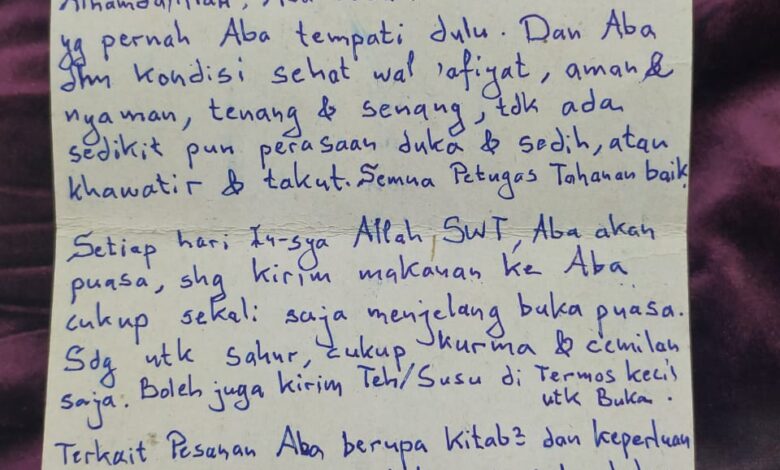 Alhamdulillah, Aba
yg pernah Aba tempati dulu. Dan Aba
dlm kondisi sehat wal 'afiyat, aman &
nyaman, tenang & senang, tdk ada
sedikit pun perasaan duka & sedih, atau
khawatir & takut. Semua Petugas Tahanan baik
Setiap hari In-sya Allah SWT, Aba akan
puasa, shg kirim makanan ke Aba
cukup sekali saja menjelang buka puasa.
Sdg utk sahur, cukup kurma & cemilan
saja. Boleh juga kirim Teh/Susu di Termos kecil
utk Buka.
Terkait Pesanan Aba berupa kitab2 dan keperluan